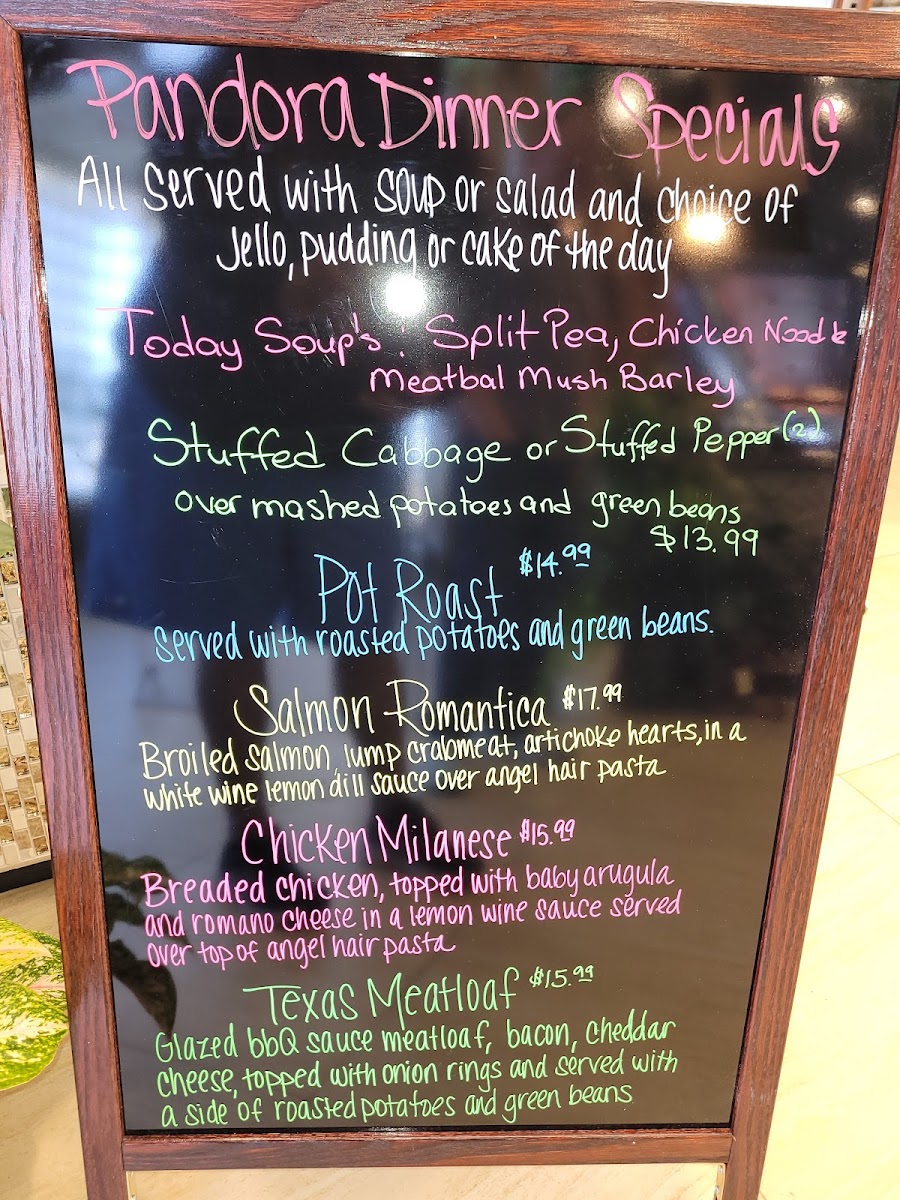 Pandora Dinner Specials
All served with soup or salad and choice of
Jello, pudding or cake of the day
Today Soup's: Split Pea, Chicken Noodle
Meatbal Mush Barley
Stuffed Cabbage or Stuffed Pepper (2)
over mashed potatoes and green beans
$13.99
Pot Roast $14.99
served with roasted potatoes and green beans.
Salmon Romantica $17.99
Broiled salmon, lump crabmeat, artichoke hearts, in a
white wine lemon dill sauce over angel hair pasta
Chicken Milanese $15.99
Breaded chicken, topped with baby arugula
and romano cheese in a lemon wine sauce served
over top of angel hair pasta
Texas Meatloaf $15.99
Glazed bbQ sauce meatloaf, bacon, cheddar
cheese, topped with onion rings and served with
a side of roasted potatoes and green beans